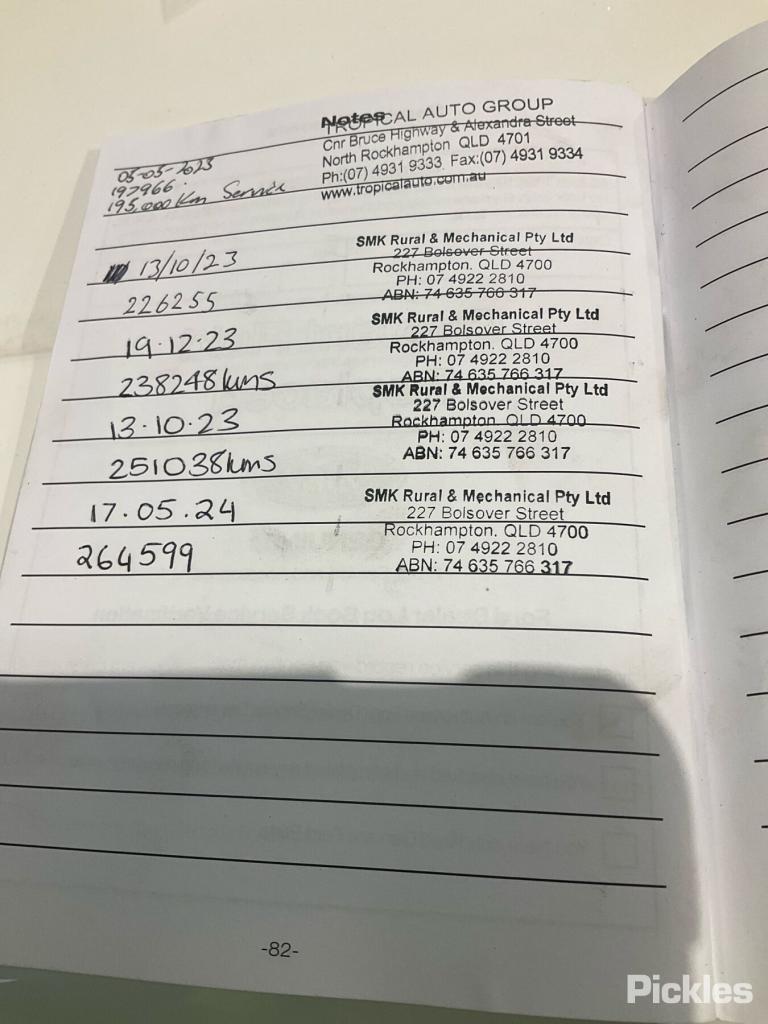 Notes
TROPICAL AUTO GROUP
Cnr Bruce Highway & Alexandra Street
North Rockhampton QLD 4701
Ph:(07) 4931 9333 Fax:(07) 4931 9334
www.tropicalauto.com.au
05-05-2023
197966.
195,000 Km Service
13/10/23
226255
SMK Rural & Mechanical Pty Ltd
227 Bolsover Street
Rockhampton. QLD 4700
PH: 07 4922 2810
ABN: 74 635 766 317
19.12.23
238248kms
SMK Rural & Mechanical Pty Ltd
227 Bolsover Street
Rockhampton. QLD 4700
PH: 07 4922 2810
ABN: 74 635 766 317
13.10.23
251038kms
SMK Rural & Mechanical Pty Ltd
227 Bolsover Street
Rockhampton. QLD 4700
PH: 07 4922 2810
ABN: 74 635 766 317
17.05.24
264599
SMK Rural & Mechanical Pty Ltd
227 Bolsover Street
Rockhampton. QLD 4700
PH: 07 4922 2810
ABN: 74 635 766 317
-82-
Pickles